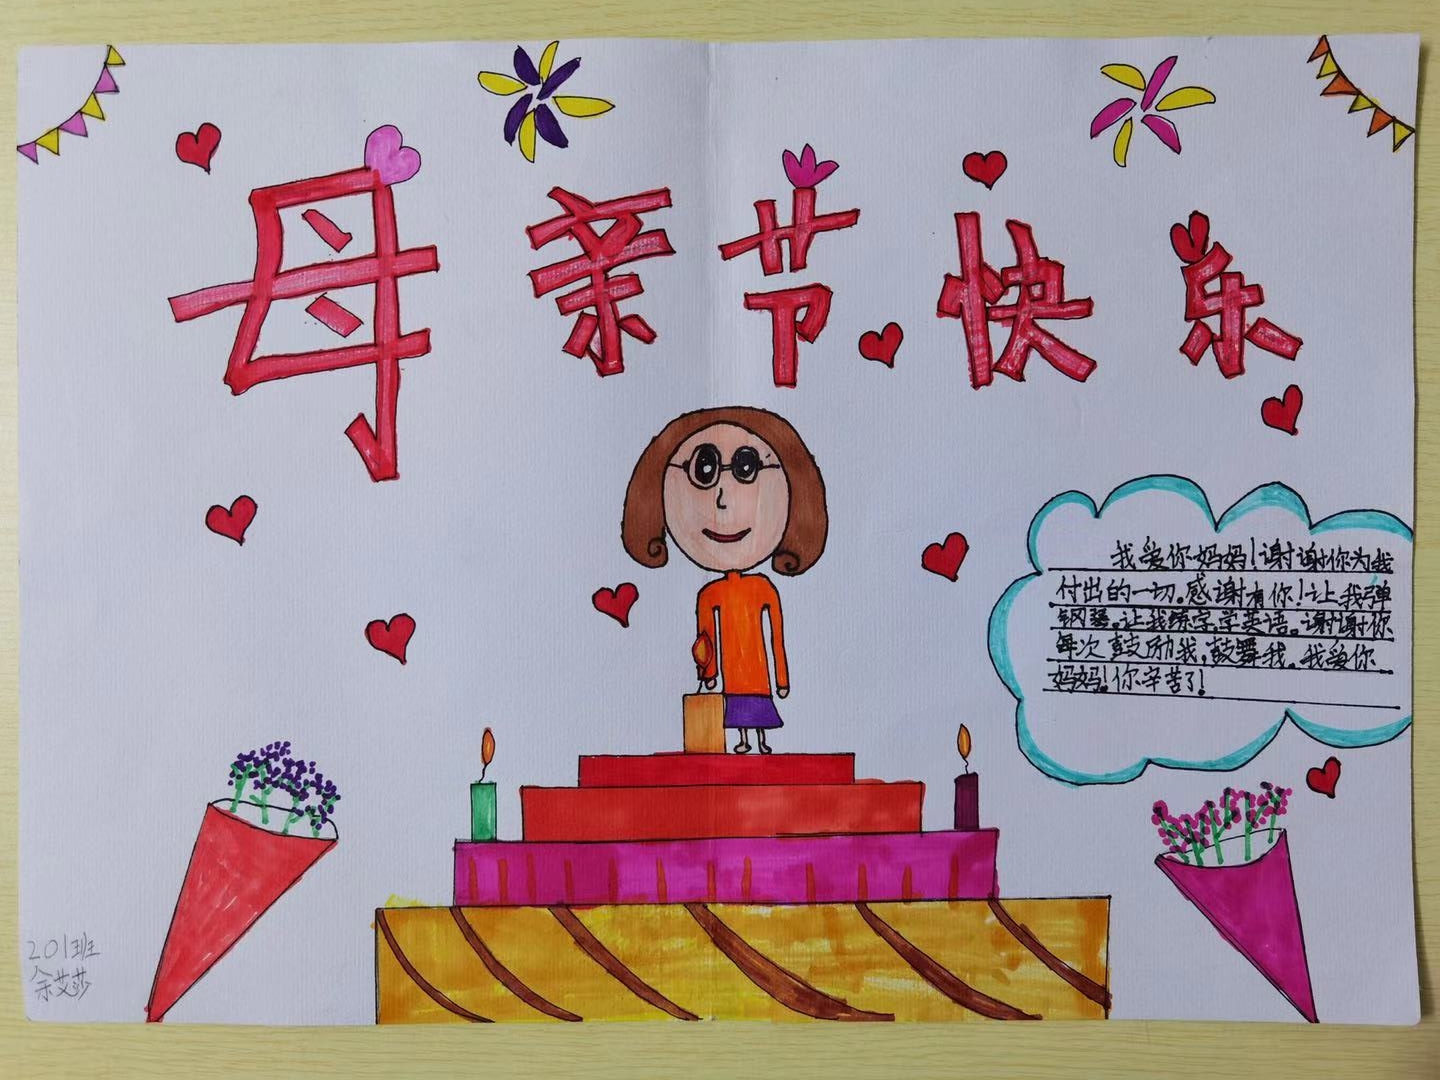 母亲节快乐
我爱你妈妈!谢谢你为我
付出的一切。感谢有你!让我弹
钢琴。让我练字,学英语。谢谢你
每次鼓励我,鼓舞我。我爱你
妈妈!你辛苦了!
201班
余艾莎